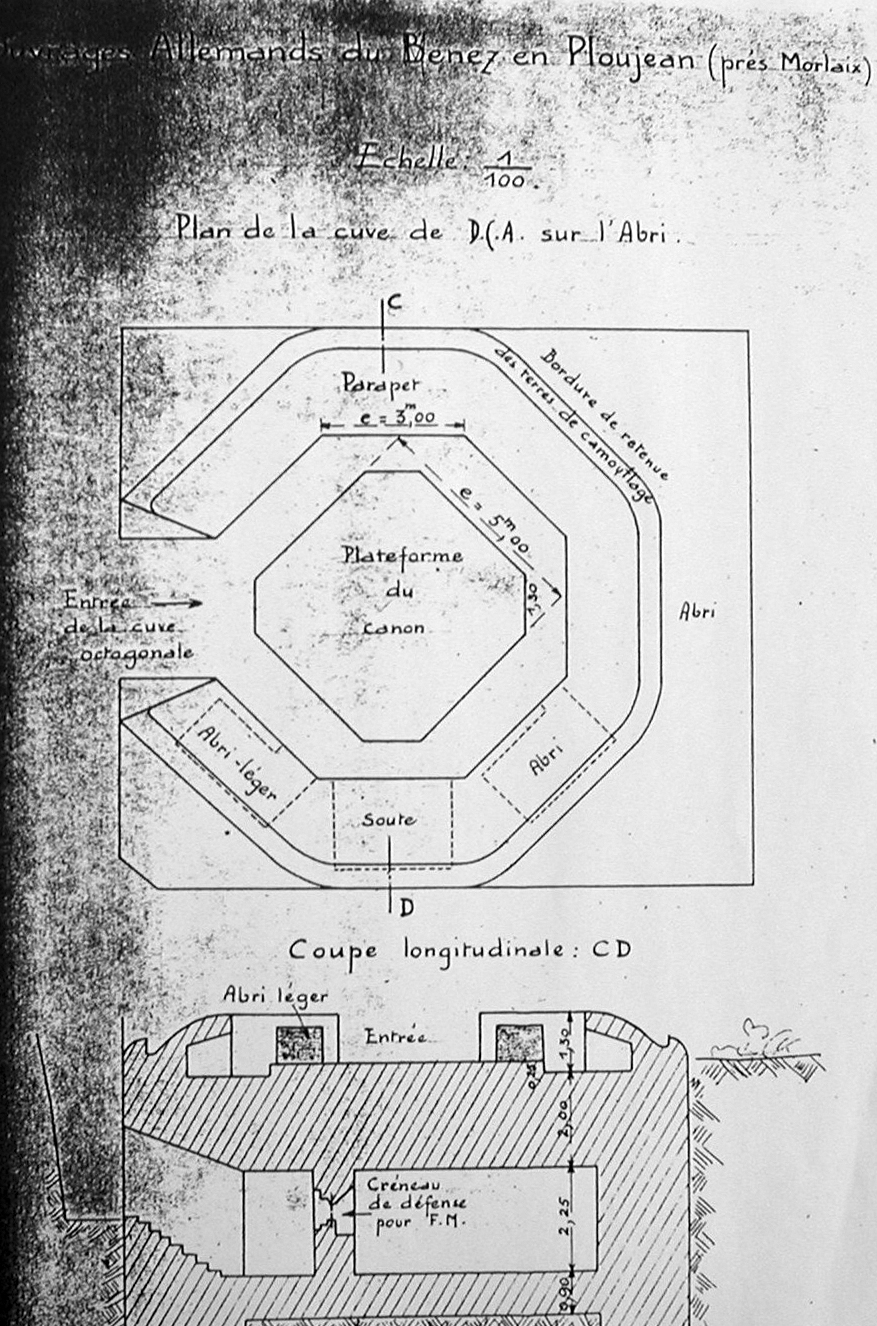 Ouvrages Allemands du Bénez en Ploujean (prés Morlaix)
Echelle: 1/100.
Plan de la cuve de D.C.A. sur l'Abri.
C
Bordure de retenue
des terres de camouflage
Parapet
e = 3m,00
e = 5m,00
Plateforme
du
canon
1,30
Entrée
de la cuve
octagonale
Abri
Abri-léger
Abri
Soute
D
Coupe longitudinale: CD
Abri léger
Entrée
1,30
2,00
Créneau
de défense
pour F.M.
2,25
0,90